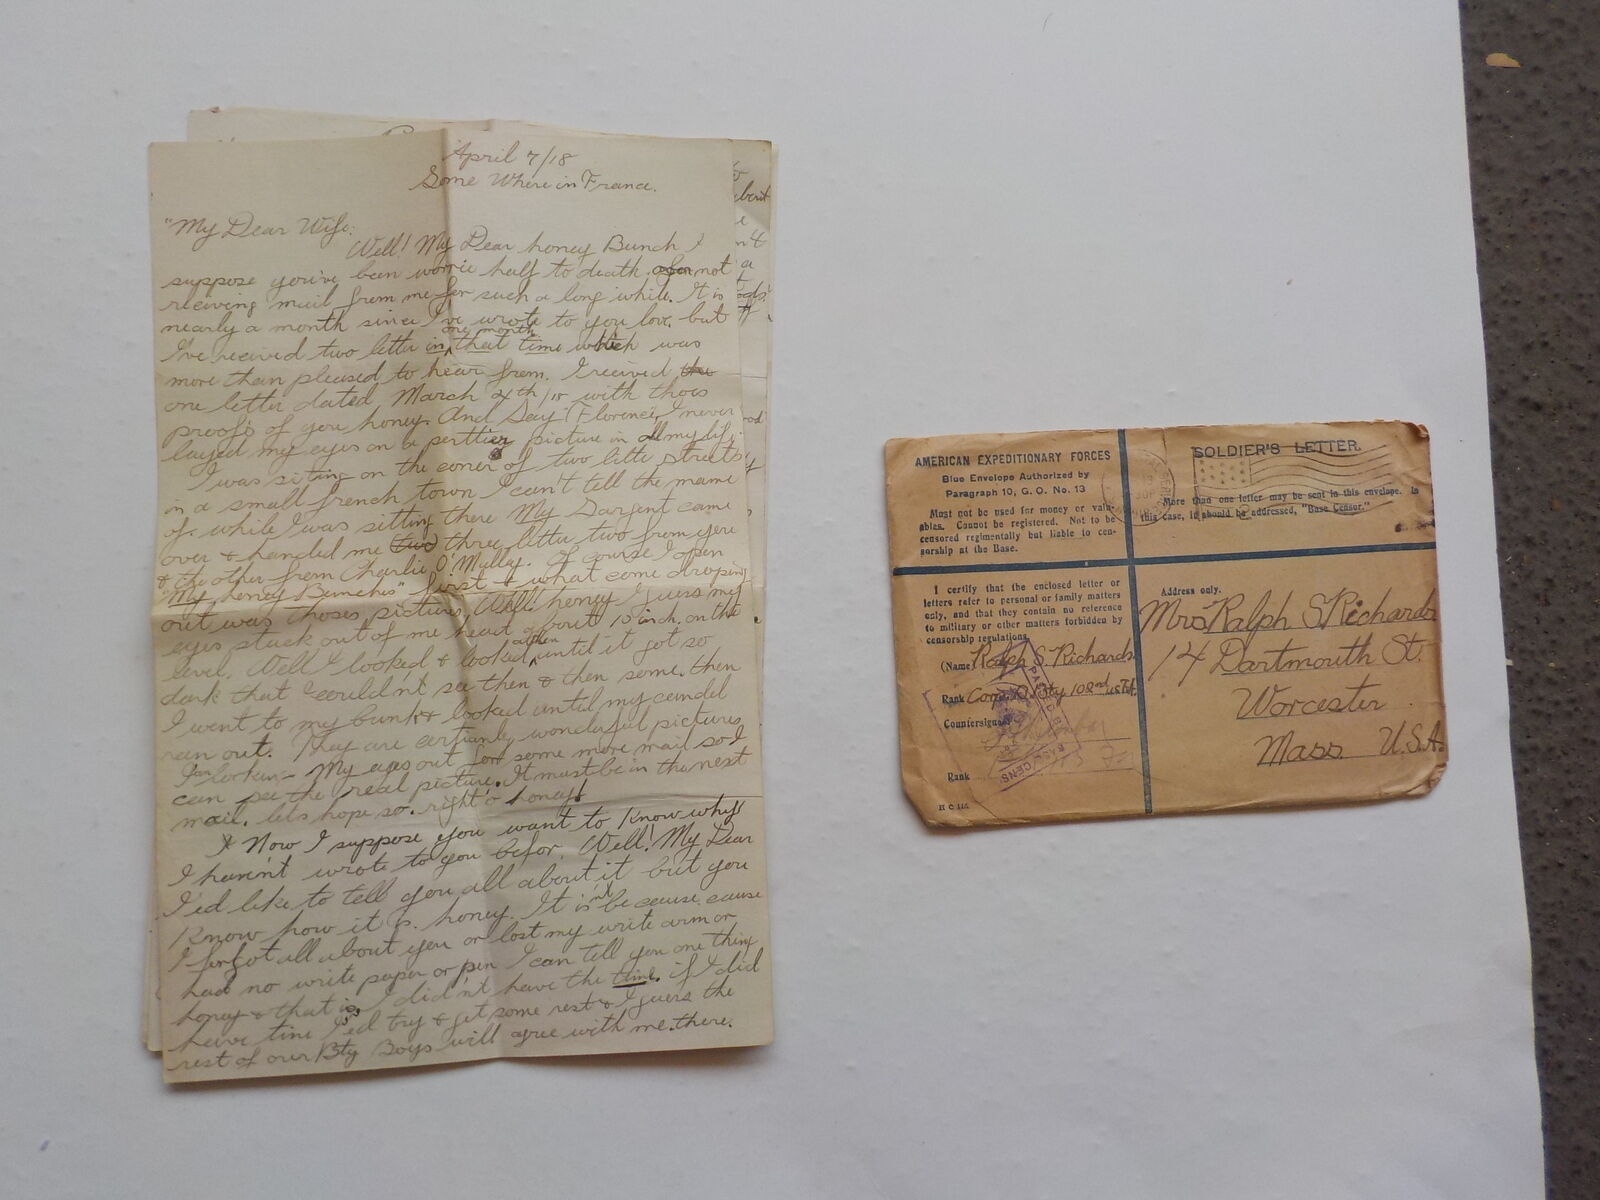 April 7/18
Some Where in France.
"My Dear Wife:
Well! My Dear honey Bunch I
suppose you've been worrie half to death. not
receiving mail from me for such a long while. It is
nearly a month since I've wrote to you love, but
I've received two letter in one month that time which was
more than pleased to hear from. I received the
one letter dated March 4th/18 with thois
proofs of you honey. And Say "Florence, I never
layed my eyes on a perttier picture in all my life.
I was sitting on the coner of two little streets
in a small french town I can't tell the name
of. while I was sitting there My Sargent came
over & handed me two three letter two from you
& the other from Charlie O'Mully. Of course I open
"My honey Bunchs" first & what come droping
out was thoses pictures. Well honey I guess my
eyes stuck out of me head about 10 inch. on the
level. Well I looked & looked until it got so
dark that I couldn't see then & then some. then
I went to my bunk & looked until my candel
ran out. They are certianly wonderful pictures
I'am lookin- My eyes out for some more mail so I
can see the real picture. It must be in the next
mail. let's hope so. right'o honey!
Now I suppose you want to Know why
I haven't wrote to you befor. Well! My Dear
I'ed like to tell you all about it but you
Know how it is honey. It isn't because cause
I forgot all about you or lost my write arm or
had no write paper or pen I can tell you one thing
honey & that is, I didn't have the time. if I did
have time I'ed try & get some rest & I guess the
rest of our Bty Boys will agree with me there.
AMERICAN EXPEDITIONARY FORCES
Blue Envelope Authorized by
Paragraph 10, G. O. No. 13
Must not be used for money or valu-
ables. Cannot be registered. Not to be
censored regimentally but liable to cen-
sorship at the Base.
SOLDIER'S LETTER.
More than one letter may be sent in this envelope. In
this case, it should be addressed, "Base Censor."
I certify that the enclosed letter or
letters refer to personal or family matters
only, and that they contain no reference
to military or other matters forbidden by
censorship regulations.
(Name) Ralph S. Richards
Rank Corp. Bty 102nd U.S.F.A.
Countersigned
Rank
H C Ltd.
PASSED BY
BASE CENSOR
Address only.
Mrs Ralph S Richards.
14 Dartmouth St.
Worcester
Mass. U.S.A.